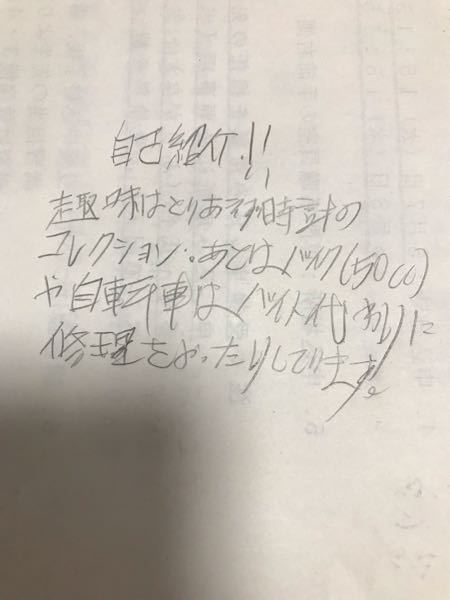 自己紹介!!
趣味はとりあえず時計の
コレクション。あとはバイク(50cc)
や自転車はバイト代わりに
修理をやったりしてます。